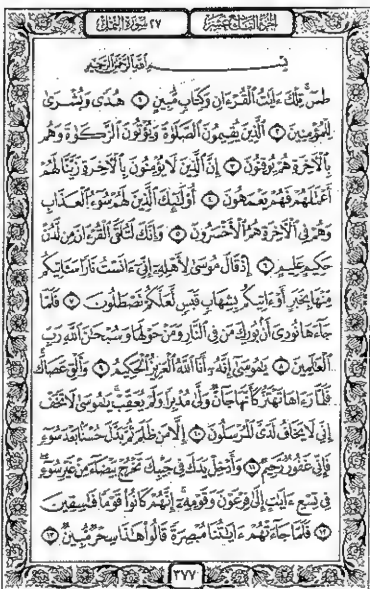 الجزء التاسع عشر ٢٧ سورة النمل
بسم الله الرحمن الرحيم
طسٓ تِلْكَ ءَايَٰتُ ٱلْقُرْءَانِ وَكِتَابٍ مُّبِينٍ ١ هُدًى وَبُشْرَىٰ
لِلْمُؤْمِنِينَ ٢ ٱلَّذِينَ يُقِيمُونَ ٱلصَّلَوٰةَ وَيُؤْتُونَ ٱلزَّكَوٰةَ وَهُم
بِٱلْءَاخِرَةِ هُمْ يُوقِنُونَ ٣ إِنَّ ٱلَّذِينَ لَا يُؤْمِنُونَ بِٱلْءَاخِرَةِ زَيَّنَّا لَهُمْ
أَعْمَٰلَهُمْ فَهُمْ يَعْمَهُونَ ٤ أُو۟لَٰٓئِكَ ٱلَّذِينَ لَهُمْ سُوٓءُ ٱلْعَذَابِ
وَهُمْ فِى ٱلْءَاخِرَةِ هُمُ ٱلْأَخْسَرُونَ ٥ وَإِنَّكَ لَتُلَقَّى ٱلْقُرْءَانَ مِن لَّدُنْ
حَكِيمٍ عَلِيمٍ ٦ إِذْ قَالَ مُوسَىٰ لِأَهْلِهِۦٓ إِنِّىٓ ءَانَسْتُ نَارًا سَـَٔاتِيكُم
مِّنْهَا بِخَبَرٍ أَوْ ءَاتِيكُم بِشِهَابٍ قَبَسٍ لَّعَلَّكُمْ تَصْطَلُونَ ٧ فَلَمَّا
جَآءَهَا نُودِىَ أَنۢ بُورِكَ مَن فِى ٱلنَّارِ وَمَنْ حَوْلَهَا وَسُبْحَٰنَ ٱللَّهِ رَبِّ
ٱلْعَٰلَمِينَ ٨ يَٰمُوسَىٰٓ إِنَّهُۥٓ أَنَا ٱللَّهُ ٱلْعَزِيزُ ٱلْحَكِيمُ ٩ وَأَلْقِ عَصَاكَ
فَلَمَّا رَءَاهَا تَهْتَزُّ كَأَنَّهَا جَآنٌّ وَلَّىٰ مُدْبِرًا وَلَمْ يُعَقِّبْ يَٰمُوسَىٰ لَا تَخَفْ
إِنِّى لَا يَخَافُ لَدَىَّ ٱلْمُرْسَلُونَ ١٠ إِلَّا مَن ظَلَمَ ثُمَّ بَدَّلَ حُسْنًۢا بَعْدَ سُوٓءٍ
فَإِنِّى غَفُورٌ رَّحِيمٌ ١١ وَأَدْخِلْ يَدَكَ فِى جَيْبِكَ تَخْرُجْ بَيْضَآءَ مِنْ غَيْرِ سُوٓءٍ
فِى تِسْعِ ءَايَٰتٍ إِلَىٰ فِرْعَوْنَ وَقَوْمِهِۦٓ إِنَّهُمْ كَانُوا۟ قَوْمًا فَٰسِقِينَ
١٢ فَلَمَّا جَآءَتْهُمْ ءَايَٰتُنَا مُبْصِرَةً قَالُوا۟ هَٰذَا سِحْرٌ مُّبِينٌ ١٣
٣٧٧